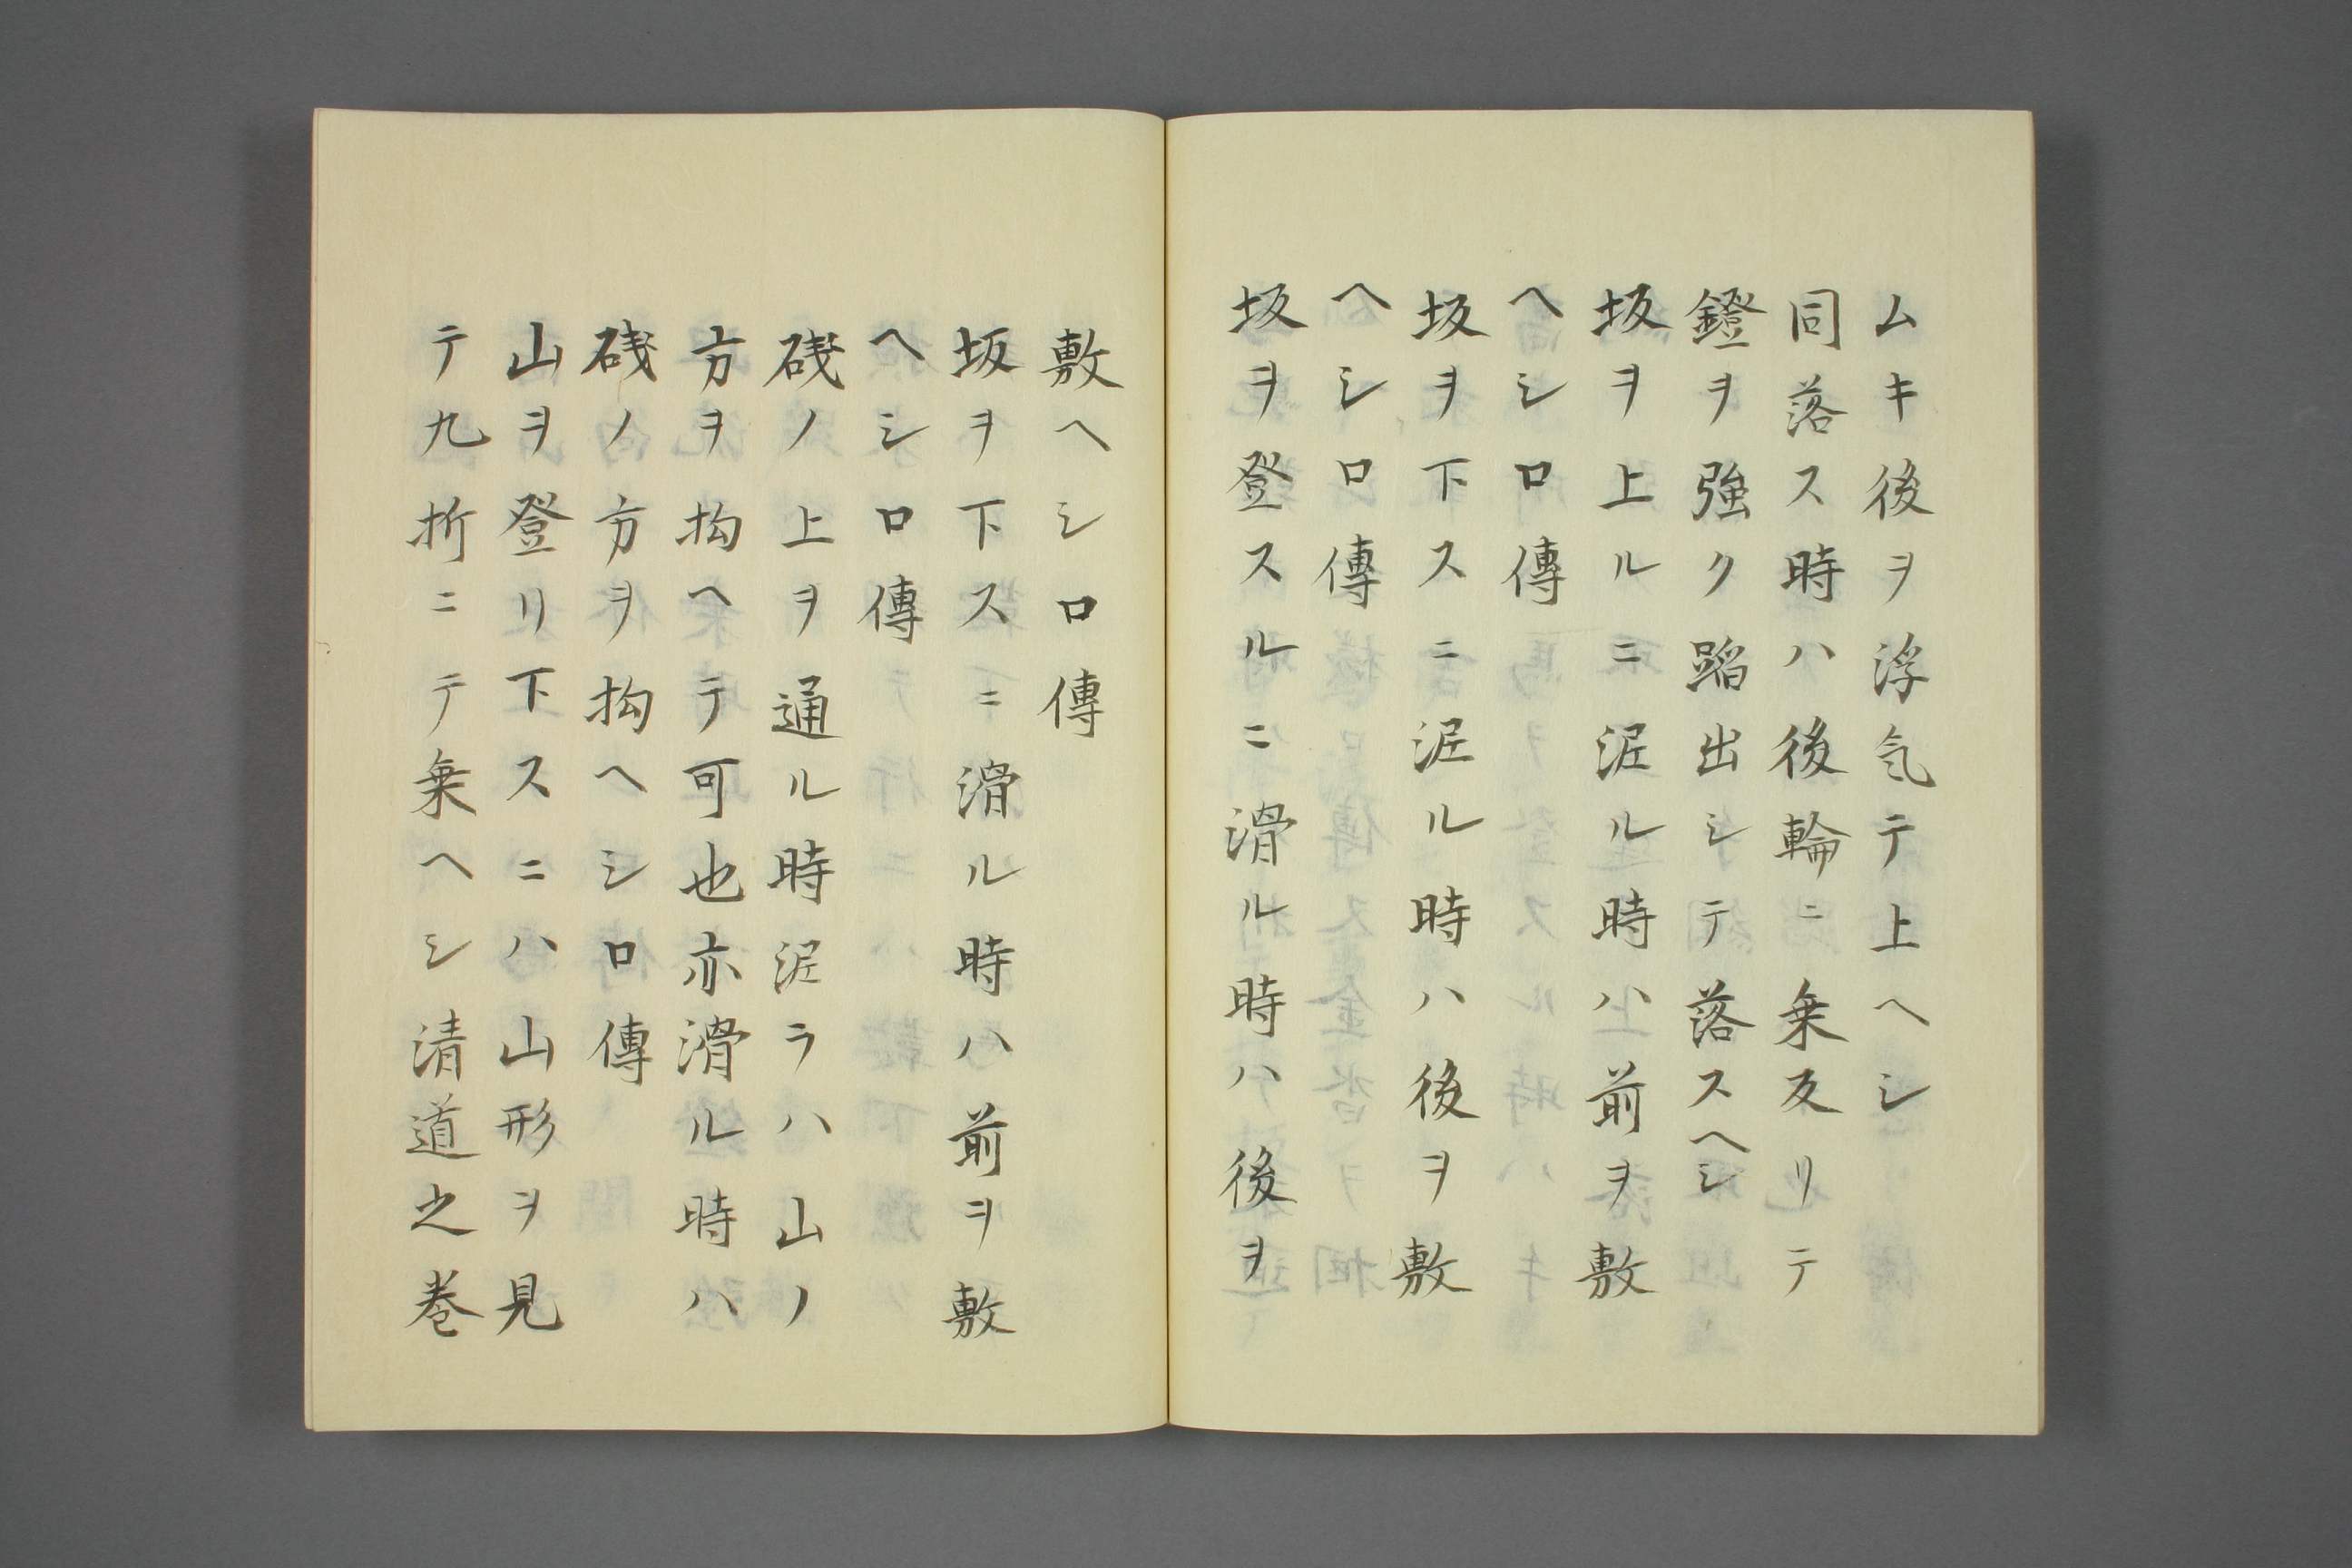 ムキ後ヲ浮気テ上ヘシ
同落ス時ハ後輪ニ乗反リテ
鐙ヲ強ク踏出シテ落スヘシ
坂ヲ上ルニ泥ル時ハ前ヲ敷
ヘシ口傳
坂ヲ下スニ泥ル時ハ後ヲ敷
ヘシ口傳
坂ヲ登スルニ滑ル時ハ後ヲ
敷ヘシ口傳
坂ヲ下スニ滑ル時ハ前ヲ敷
ヘシ口傳
磯ノ上ヲ通ル時泥ラハ山ノ
方ヲ拘ヘテ可也亦滑ル時ハ
磯ノ方ヲ拘ヘシ口傳
山ヲ登リ下スニハ山形ヲ見
テ九折ニテ乗ヘシ清道之巻